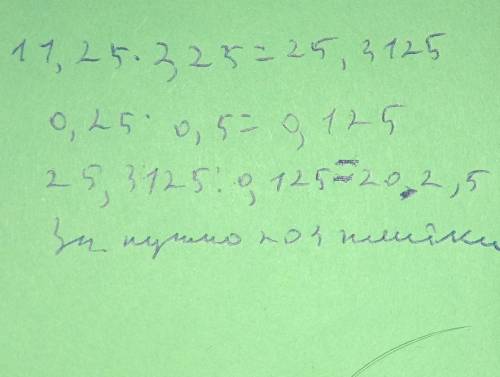 11,25 · 2,25 = 25,3125
0,25 · 0,5 = 0,125
25,3125 : 0,125 = 20.2,5
нужно 203 плитки